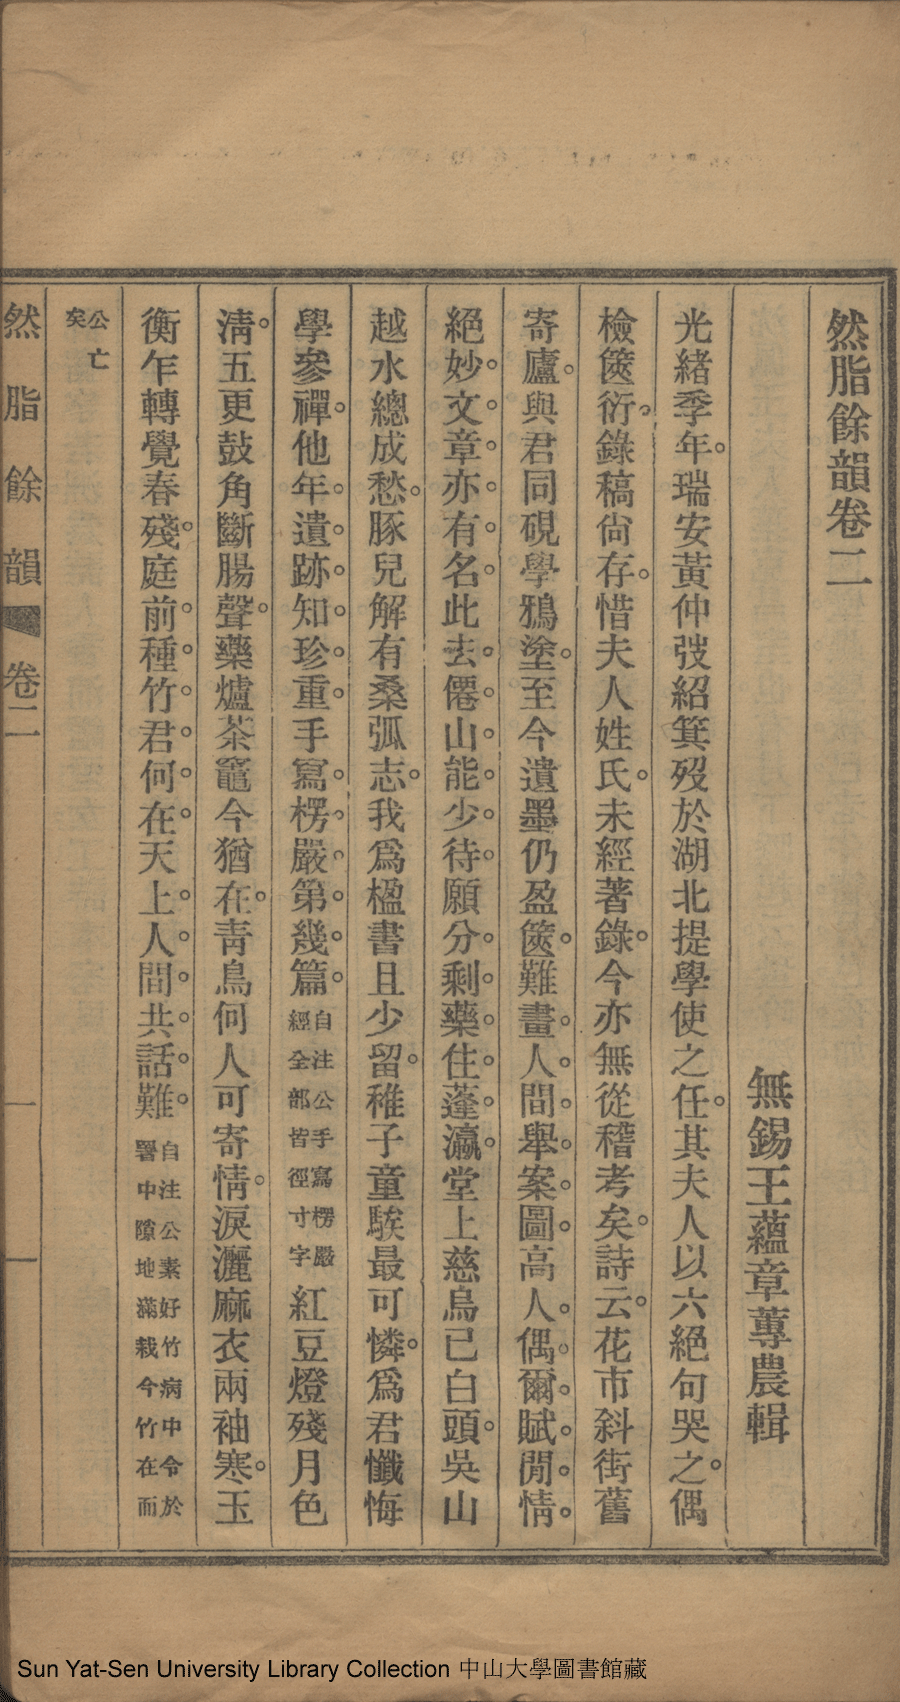 然脂餘韻卷二
無錫王蘊章蓴農輯
光緒季年。瑞安黃仲弢紹箕歿於湖北提學使之任。其夫人以六絕句哭之。偶
檢篋衍。錄稿尙存。惜夫人姓氏。未經著錄。今亦無從稽考矣。詩云。花市斜街舊
寄廬。與君同硯學鴉塗。至今遺墨仍盈篋。難畫。人。間。舉。案。圖。高人。偶。爾。賦。閒。情。
絕妙。文。章。亦。有。名。此去。僊。山。能。少。待。願分。剩。藥。住。蓬。瀛。堂上慈烏已白頭。吳山
越水總成愁。豚兒解有桑弧志。我爲楹書且少留。稚子童騃最可憐。爲君懺悔
學參禪。他年。遺。跡。知。珍。重。手寫。楞。嚴。第。幾。篇。自注公手寫楞嚴經全部皆徑寸字紅豆燈殘月色
淸。五更鼓角斷腸聲。藥爐茶竈今猶在。靑鳥何人可寄情。淚灑麻衣兩袖寒。玉
衡乍轉覺春殘。庭前。種。竹。君。何。在。天上。人。間。共。話。難。自注公素好竹病中令於署中隙地滿栽今竹在而
公亡矣
然脂餘韻
卷二
一
一
Sun Yat-Sen University Library Collection 中山大學圖書館藏